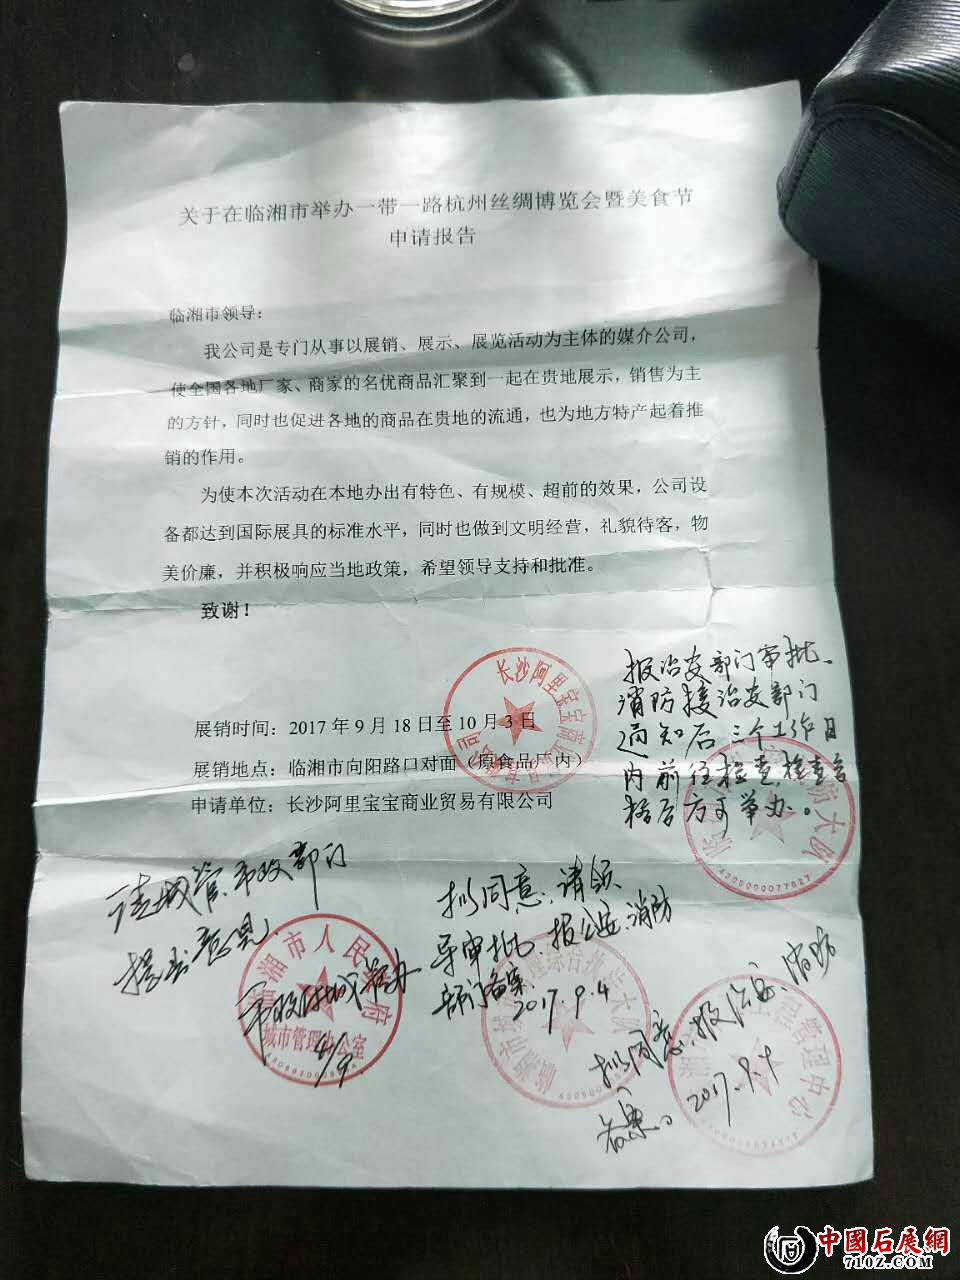 关于在临湘市举办一带一路杭州丝绸博览会暨美食节
申请报告
临湘市领导：
我公司是专门从事以展销、展示、展览活动为主体的媒介公司，
使全国各地厂家、商家的名优商品汇聚到一起在贵地展示，销售为主
的方针，同时也促进各地的商品在贵地的流通，也为地方特产起着推
销的作用。
为使本次活动在本地办出有特色、有规模、超前的效果，公司设
备都达到国际展具的标准水平，同时也做到文明经营，礼貌待客，物
美价廉，并积极响应当地政策，希望领导支持和批准。
致谢！
展销时间：2017年9月18日至10月3日
展销地点：临湘市向阳路口对面（原食品厂内）
申请单位：长沙阿里宝宝商业贸易有限公司
长沙阿里宝宝商业贸易有限公司
报治安部门审批、
消防接治安部门
通知后三个工作日
内前往检查，检查合
格后方可举办。
防大队
请城管、市政部门
提出意见
临湘市人民政府
城市管理办公室
拟同意，请领
导审批，报公安、消防
部门备案
2017.9.4
拟同意，报治安、消防
备案。2017.9.4
管理中心
中國石展網
710Z.COM